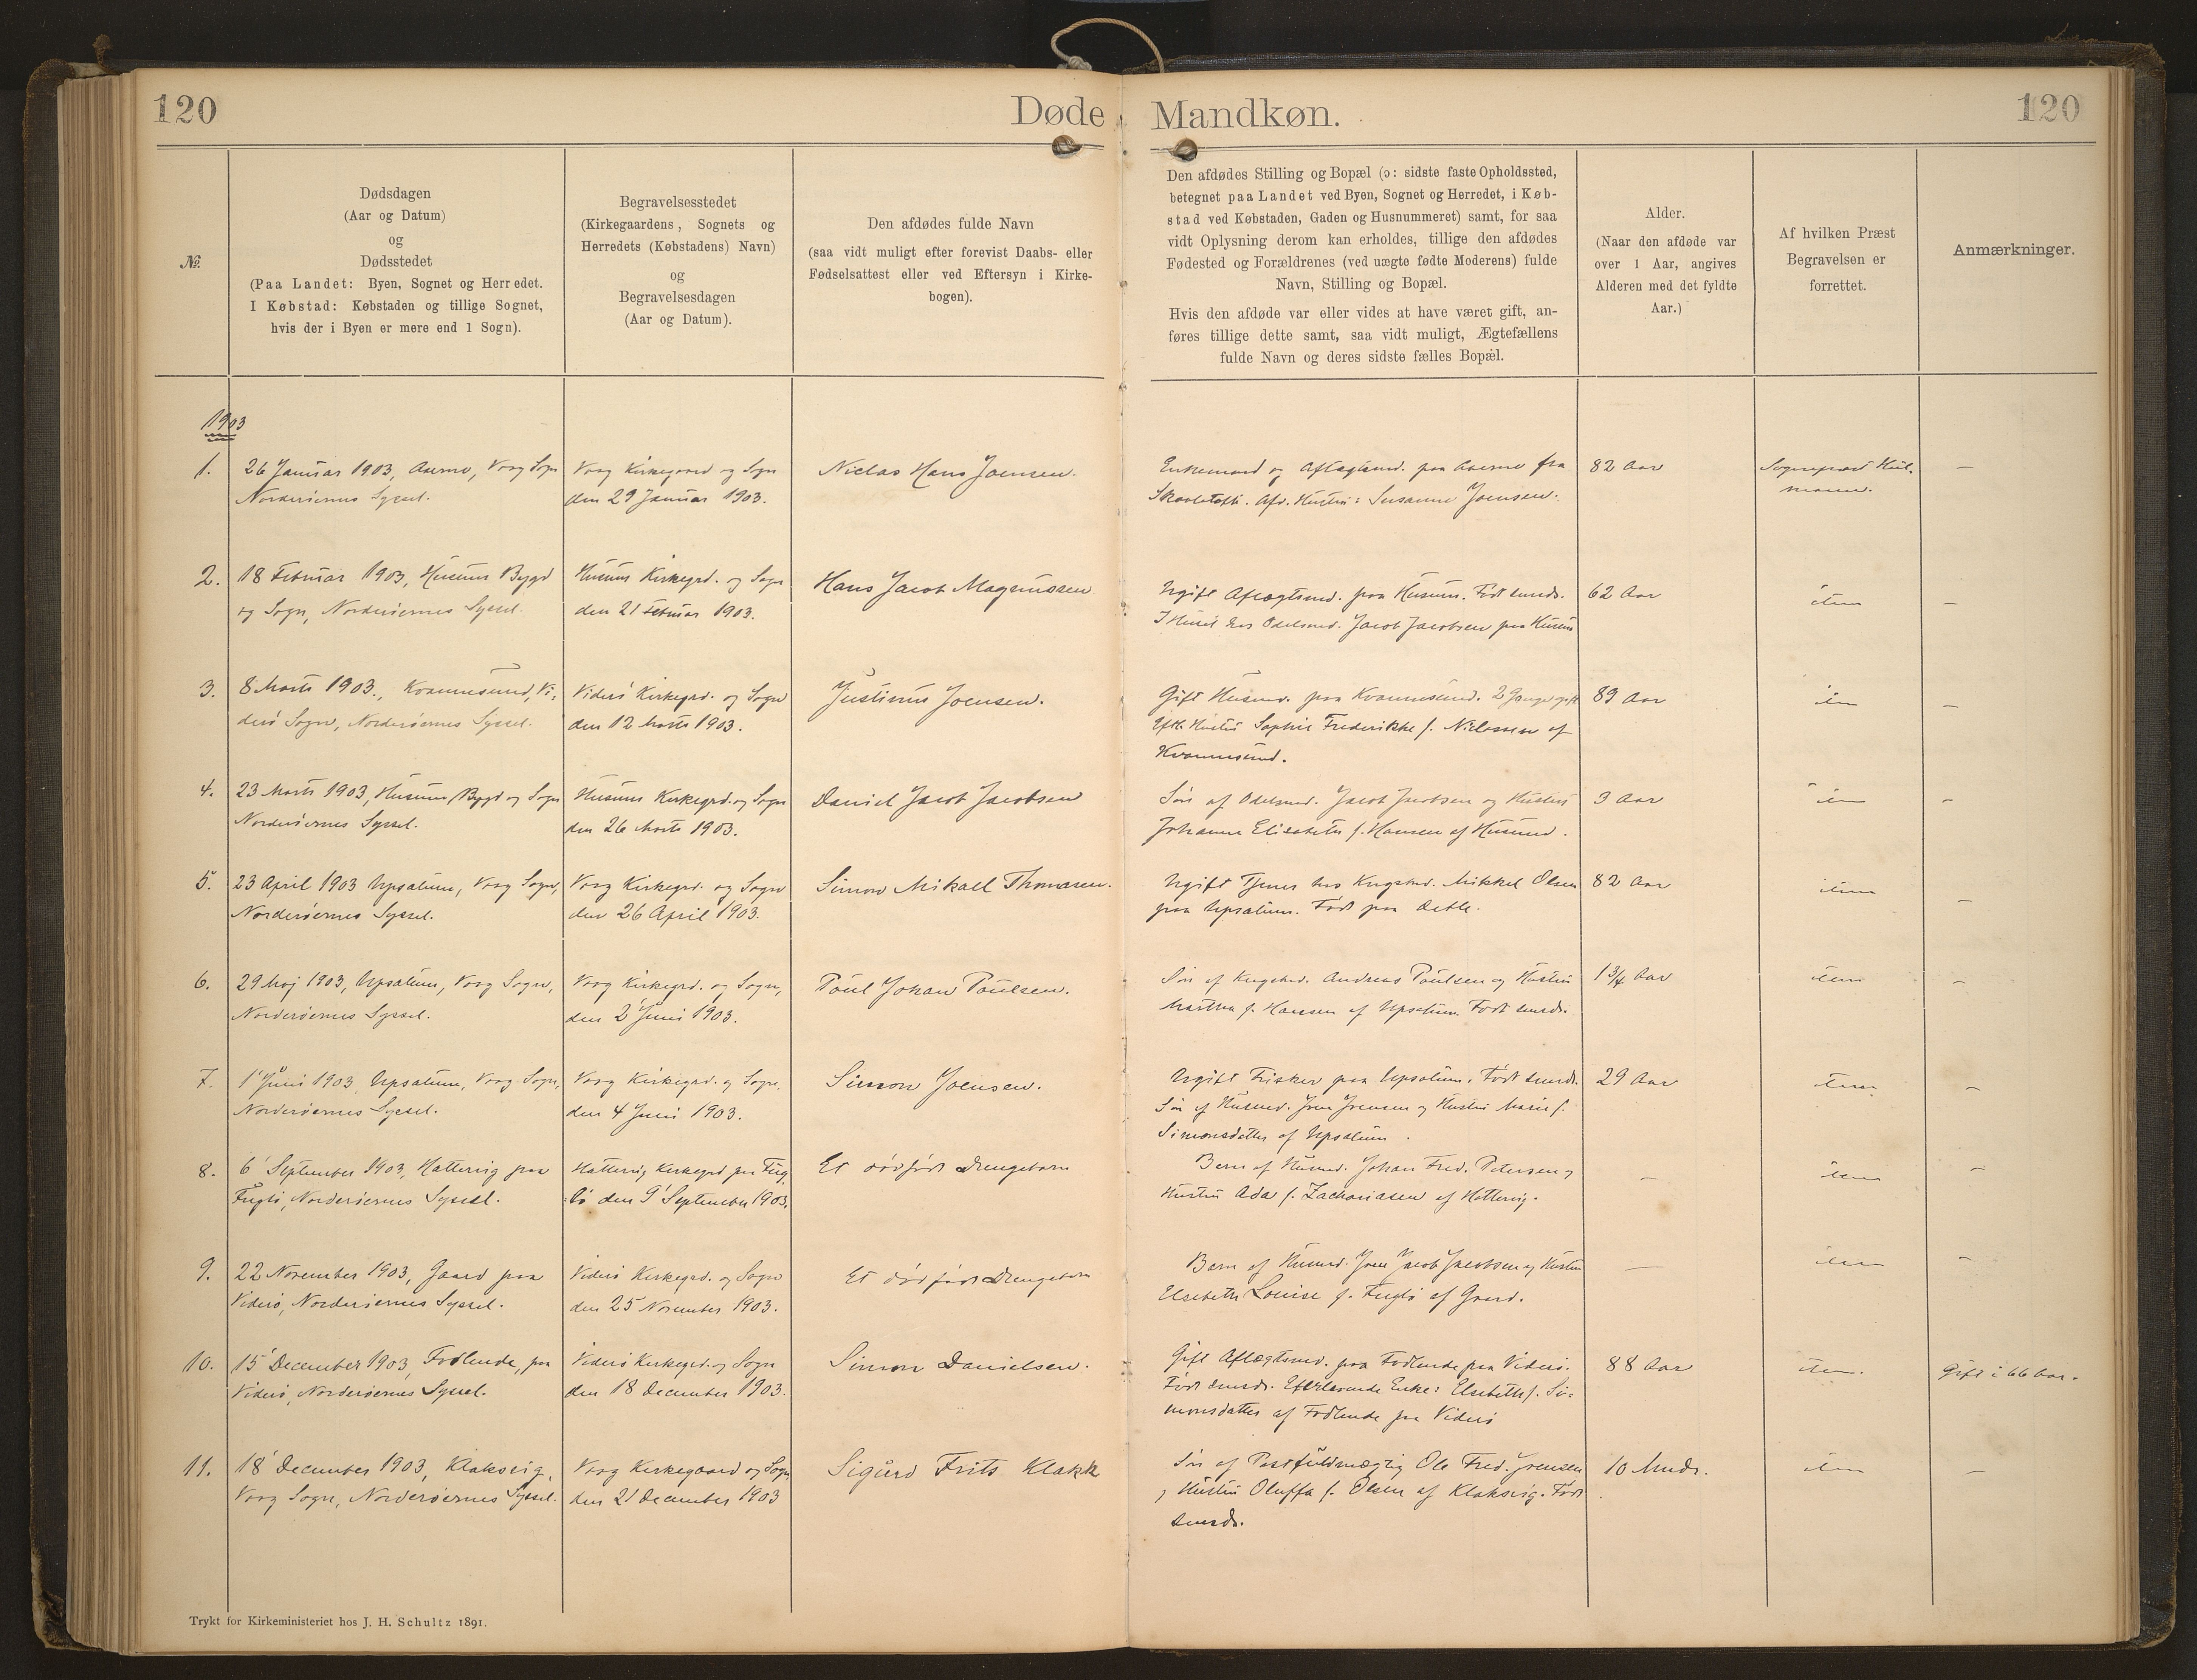 120
Døde
Mandkøn.
120
№
Dødsdagen
(Aar og Datum)
og
Dødsstedet
(Paa Landet: Byen, Sognet og Herredet.
I Købstad: Købstaden og tillige Sognet,
hvis der i Byen er mere end 1 Sogn).
Begravelsesstedet
(Kirkegaardens, Sognets og
Herredets (Købstadens) Navn)
og
Begravelsesdagen
(Aar og Datum).
Den afdødes fulde Navn
(saa vidt muligt efter forevist Daabs- eller
Fødselsattest eller ved Eftersyn i Kirke-
bogen).
Den afdødes Stilling og Bopæl (ɔ: sidste faste Opholdssted,
betegnet paa Landet ved Byen, Sognet og Herredet, i Køb-
stad ved Købstaden, Gaden og Husnummeret) samt, for saa
vidt Oplysning derom kan erholdes, tillige den afdødes
Fødested og Forældrenes (ved uægte fødte Moderens) fulde
Navn, Stilling og Bopæl.
Hvis den afdøde var eller vides at have været gift, an-
føres tillige dette samt, saa vidt muligt, Ægtefællens
fulde Navn og deres sidste fælles Bopæl.
Alder.
(Naar den afdøde var
over 1 Aar, angives
Alderen med det fyldte
Aar.)
Af hvilken Præst
Begravelsen er
forrettet.
Anmærkninger.
1903
1.
26 Januar 1903, Vaag Sogn
Norderøernes Syssel.
Vaag Kirkegaard og Sogn
den 29 Januar 1903.
Niclas Hans Joensen.
Enkemand og Aftægtsmd. paa fra
Afd. Hustru: Susanne Joensen.
82 Aar
Sognepræst
—
2.
18 Februar 1903, Husum Bygd
og Sogn, Norderøernes Syssel.
Husum Kirkegrd. og Sogn
den 21 Februar 1903.
Hans Jacob Magnussen
Ugift Aftægtsmd. paa Husum. Født smsds.
I Huset hos Odelsmd. Jacob Jacobsen paa Husum
62 Aar
item
—
3.
8 Marts 1903, Kvannesund, Vi-
derø Sogn, Norderøernes Syssel.
Viderø Kirkegrd. og Sogn
den 12 Marts 1903.
Justinus Joensen.
Gift Husmd. paa Kvannesund. 2 Gange gift
Hustru Sophie Frederikke f. Nielassen af
Kvannesund.
89 Aar
item
—
4.
23 Marts 1903, Husum Bygd og Sogn
Norderøernes Syssel.
Husum Kirkegrd. og Sogn
den 26 Marts 1903.
Daniel Jacob Jacobsen
Søn af Odelsmd. Jacob Jacobsen og Hustru
Johanne Elisabeth f. Hansen af Husum.
3 Aar
item
—
5.
23 April 1903 Upsalum, Vaag Sogn,
Norderøernes Syssel.
Vaag Kirkegrd. og Sogn
den 26 April 1903.
Simon Mikall Thomasen.
Ugift Tjener hos Kngsbnd. Mikkel Olsen
paa Upsalum. Født paa dette.
82 Aar
item
—
6.
29 Maj 1903, Upsalum, Vaag Sogn,
Norderøernes Syssel.
Vaag Kirkegrd. og Sogn,
den 2 Juni 1903.
Poul Johan Poulsen.
Søn af Kngsbnd. Andreas Poulsen og Hustru
Martha f. Hansen af Upsalum. Født smsds.
1 3/4 Aar
item
—
7.
1 Juni 1903, Upsalum, Vaag Sogn,
Norderøernes Syssel.
Vaag Kirkegrd. og Sogn,
den 4 Juni 1903.
Simon Joensen.
Ugift Fisker paa Upsalum. Født smsds.
Søn af Husmd. Joen Joensen og Hustru Marie f.
Simonsdatter af Upsalum.
29 Aar
item
—
8.
6 September 1903, Hattervig paa
Fuglø, Norderøernes Syssel.
Hattervig Kirkegrd paa Fug-
lø den 9 September 1903.
Et dødfødt Drengebarn
Barn af Husmd. Johan Fred. Petersen og
Hustru Ada f. Zachariasen af Hattervig.
—
item
—
9.
22 November 1903, Gaard paa
Viderø, Norderøernes Syssel.
Viderø Kirkegrd. og Sogn
den 25 November 1903.
Et dødfødt Drengebarn
Barn af Husmd. Joen Jacob Jacobsen og Hustru
Elsebeth Louise f. Fuglø af Gaard.
—
item
—
10.
15 December 1903, Fodlende, paa
Viderø, Norderøernes Syssel.
Viderø Kirkegrd. og Sogn
den 18 December 1903.
Simon Danielsen.
Gift Aftægtsmd. paa Fodlende paa Viderø.
Født smsds. Efterlevende Enke: Elsebeth f. Si-
monsdatter af Fodlende paa Viderø
88 Aar
item.
Gift i 66 Aar.
11.
18 December 1903, Klaksvig,
Vaag Sogn, Norderøernes Syssel.
Vaag Kirkegaard og Sogn,
den 21 December 1903
Sigurd Frits Klakk
Søn af Postfuldmægtig Ole Fred. Joensen
og Hustru Oluffa f. Olsen af Klaksvig. Født
smsds.
10 Mnds.
item
—
Trykt for Kirkeministeriet hos J. H. Schultz 1891.